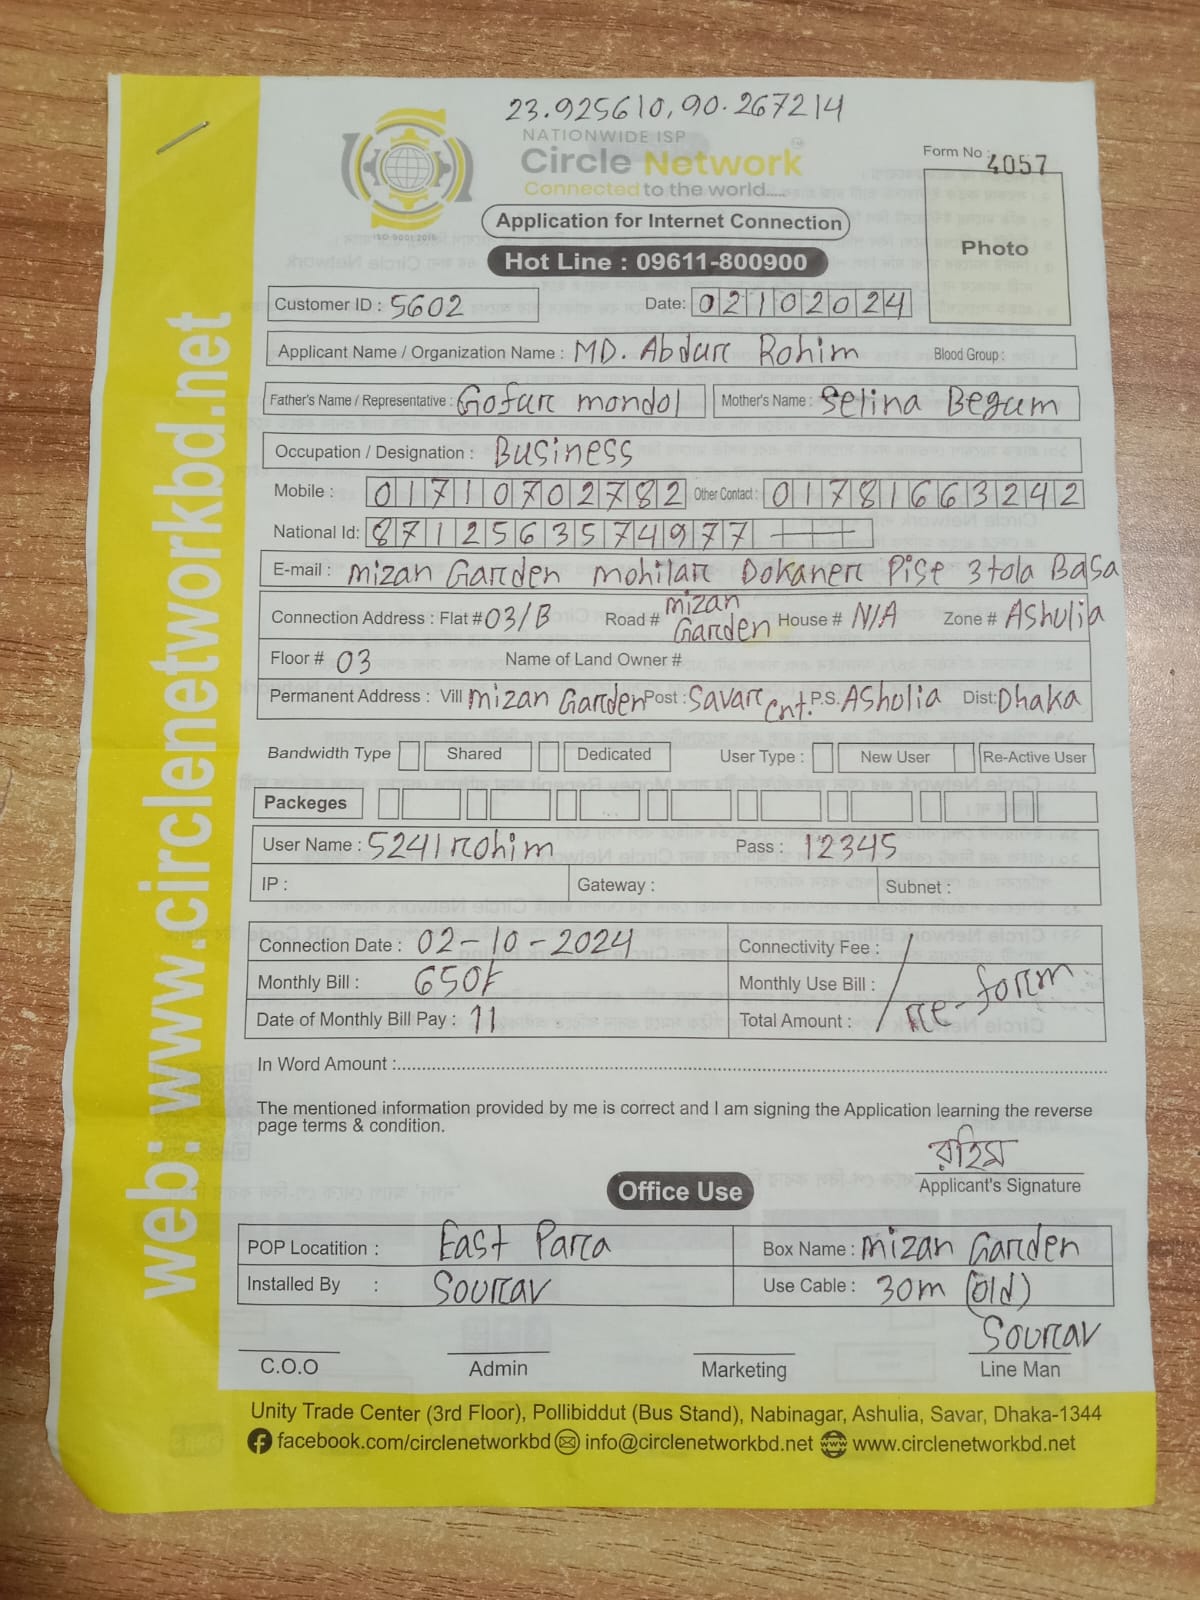 23.925610, 90.267214
NATIONWIDE ISP
Circle Network
Connected to the world.....
ISO 9001:2015
Form No : 4057
Photo
Application for Internet Connection
Hot Line : 09611-800900
Customer ID : 5602 Date: 02102024
Applicant Name / Organization Name : MD. Abdur Rohim Blood Group :
Father's Name / Representative : Gofur mondol Mother's Name : Selina Begum
Occupation / Designation : Business
Mobile : 01710702782 Other Contact : 01781663242
National Id: 8712563574977
E-mail : mizan Garden mohilar Dokaner Pise 3 tola Basa
Connection Address : Flat # 03/B Road # mizan Garden House # N/A Zone # Ashulia
Floor # 03 Name of Land Owner #
Permanent Address : Vill mizan Garden Post : Savar Cnt. P.S. Asholia Dist: Dhaka
Bandwidth Type Shared Dedicated User Type : New User Re-Active User
Packeges
User Name : 5241rohim Pass : 12345
IP : Gateway : Subnet :
Connection Date : 02-10-2024 Connectivity Fee :
Monthly Bill : 650/- Monthly Use Bill : re-form
Date of Monthly Bill Pay : 11 Total Amount :
In Word Amount :
The mentioned information provided by me is correct and I am signing the Application learning the reverse
page terms & condition.
রহিম
Applicant's Signature
Office Use
POP Locatition : East Para Box Name : mizan Garden
Installed By : Sourav Use Cable : 30m (old)
Sourav
C.O.O Admin Marketing Line Man
Unity Trade Center (3rd Floor), Pollibiddut (Bus Stand), Nabinagar, Ashulia, Savar, Dhaka-1344
facebook.com/circlenetworkbd info@circlenetworkbd.net www.circlenetworkbd.net
web: www.circlenetworkbd.net